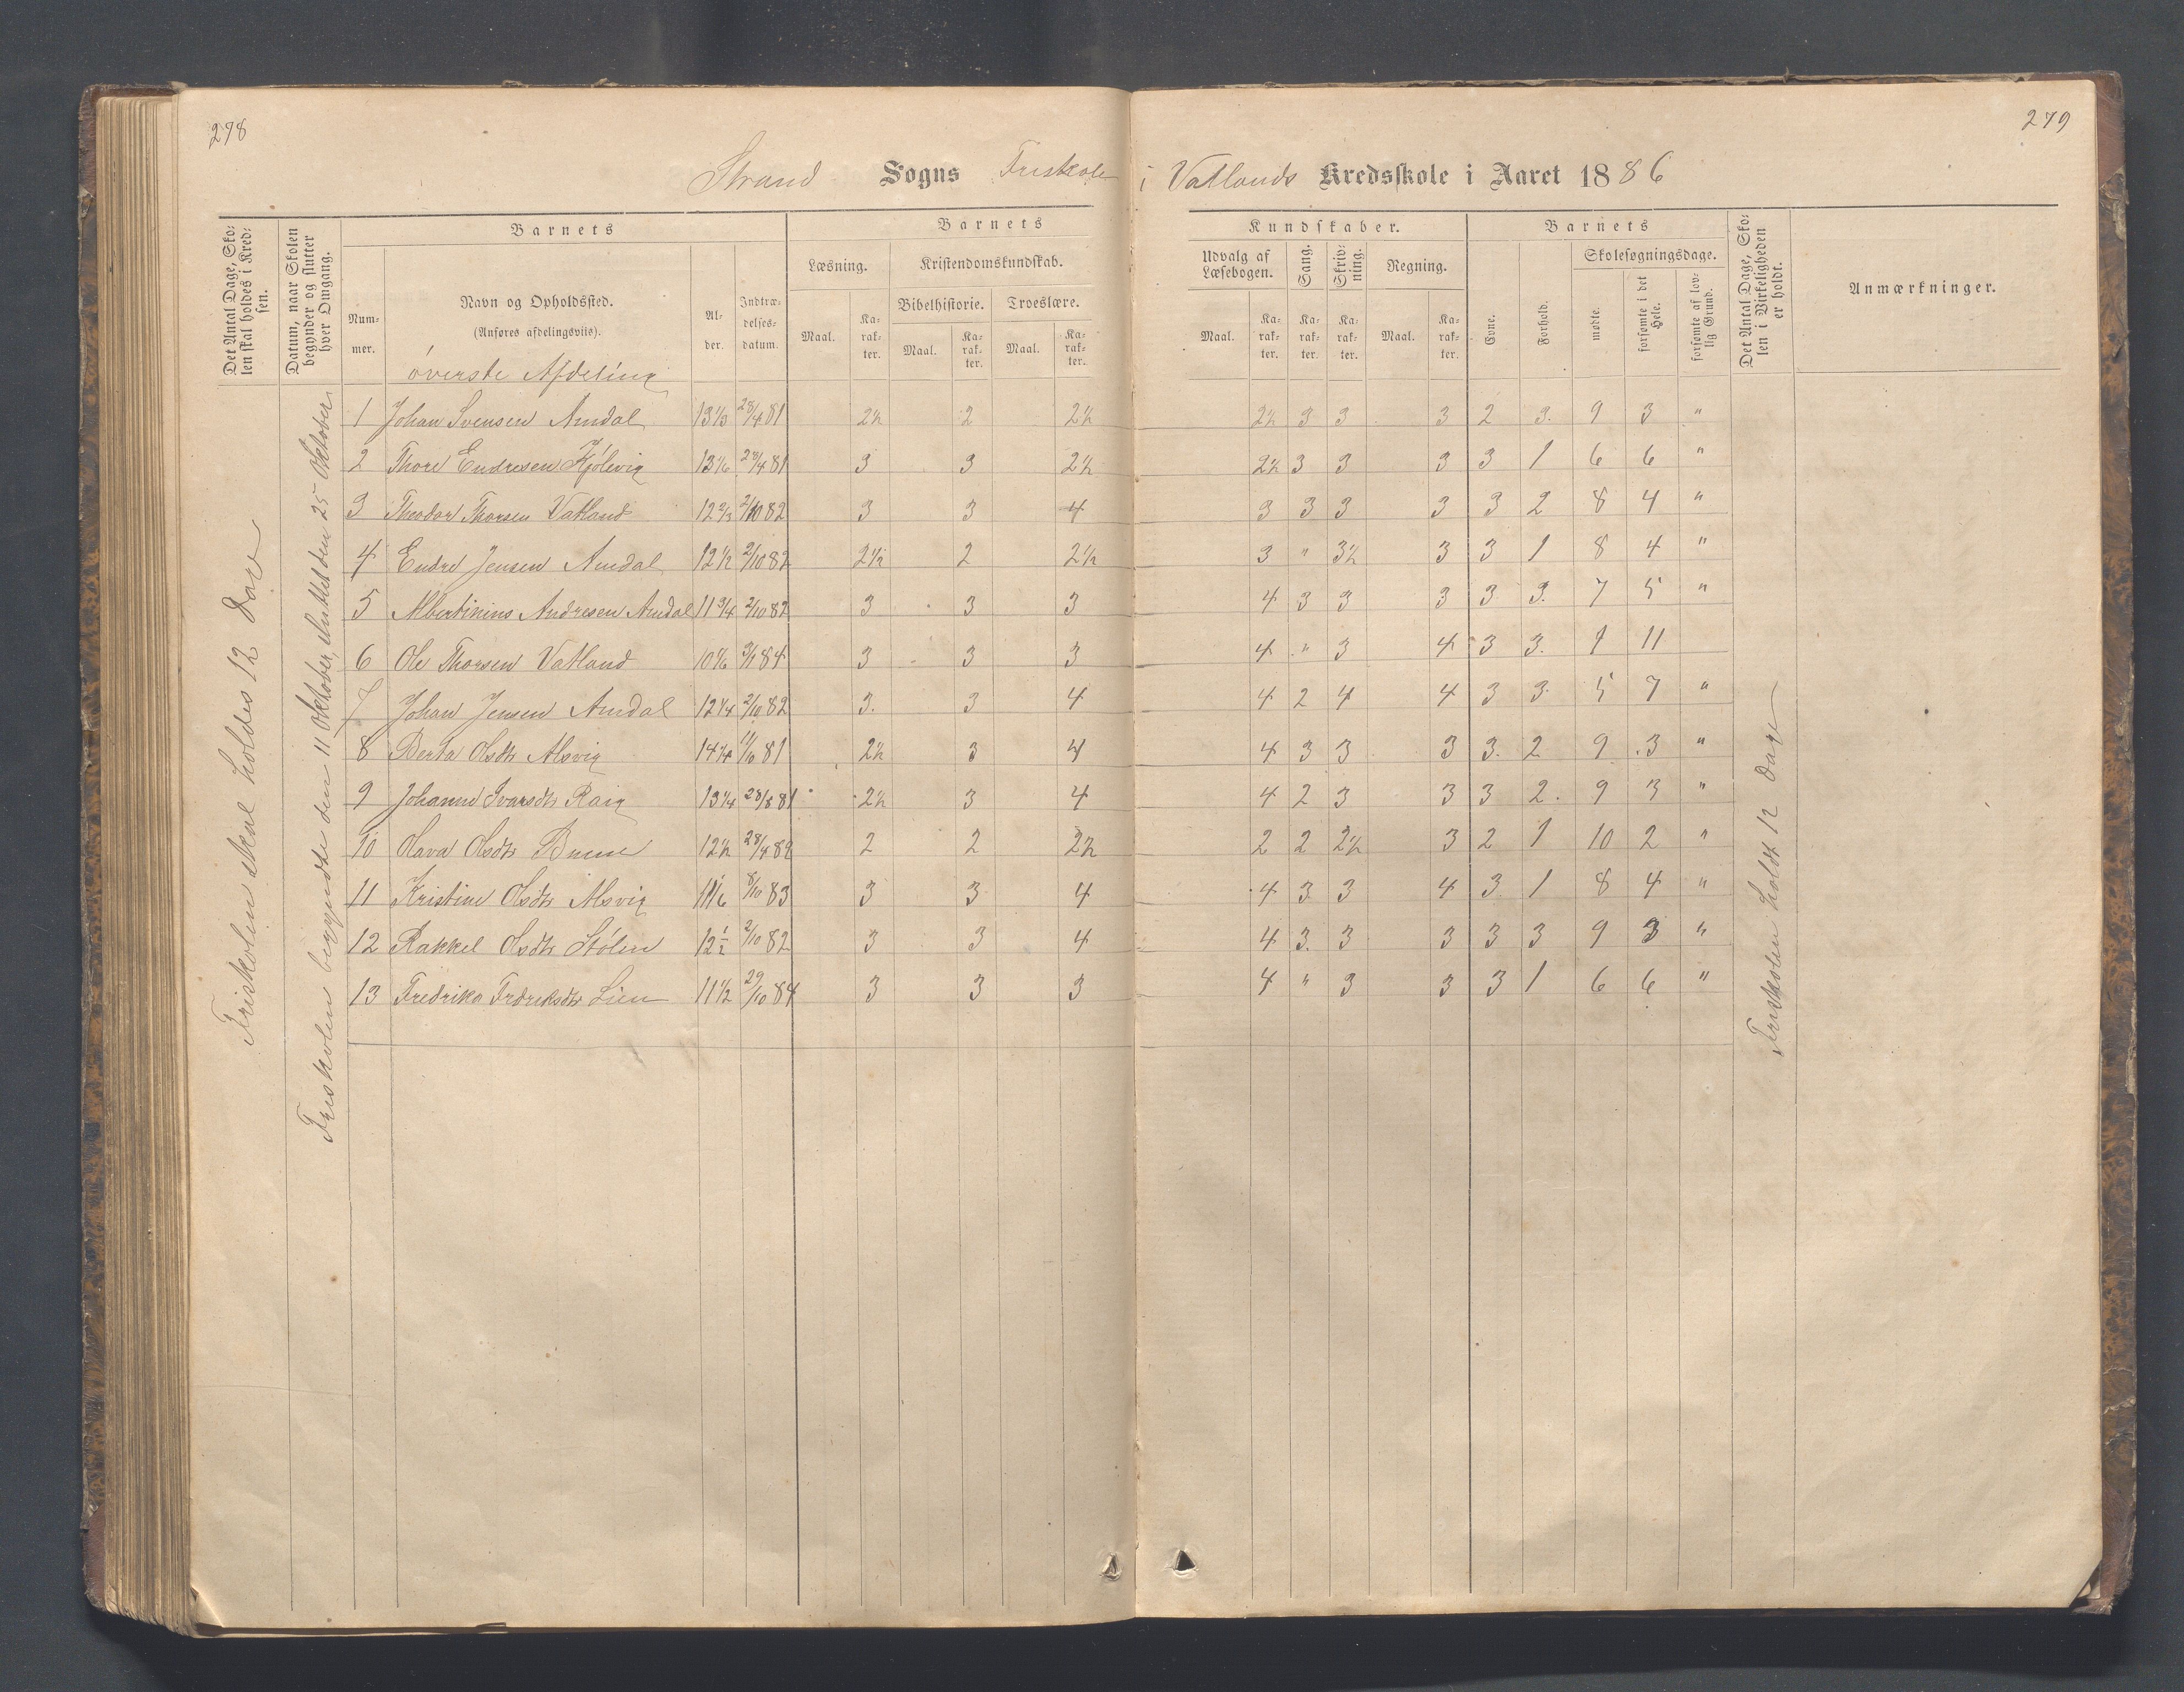 278
279
Strand Sogns Friskole i Vatlands Kredsskole i Aaret 1886
Det Antal Dage, Skolen skal holdes i Kredsen.
Datum, naar Skolen begynder og slutter hver Omgang.
Barnets
Nummer.
Navn og Opholdssted.
(Anføres afdelingsviis).
Alder.
Indtrædelsesdatum.
Barnets Kundskaber.
Læsning. Kristendomskundskab. Udvalg af Læsebogen. Sang. Skrivning. Regning.
Bibelhistorie. Troeslære.
Maal. Karakter. Maal. Karakter. Maal. Karakter. Maal. Karakter. Karakter. Karakter. Maal. Karakter.
Barnets
Evne. Forhold.
Skolesøgningsdage.
mødte. forsømte i det Hele. forsømte af lovlig Grund.
Det Antal Dage, Skolen i Virkeligheden er holdt.
Anmærkninger.
Friskolen skal holdes 12 Dage
Friskolen begyndte den 11 Oktober, sluttet den 25 Oktober
øverste Afdeling
1 Johan Svensen Amdal 13 1/3 28/4 81 2½ 2 2½ 2½ 3 3 3 2 3. 9 3 "
2 Thore Endresen Kjølevig 13 1/6 28/4 81 3 3 2½ 2½ 3 3 3 3 1 6 6 "
3 Theodor Thorsen Vatland 12 2/3 2/10 82 3 3 4 3 3 3 3 3 2 8 4 "
4 Endre Jensen Amdal 12 1/2 2/10 82 2½ 2 2½ 3 " 3½ 3 3 1 8 4 "
5 Albertinius Andresen Amdal 11 3/4 2/10 82 3 3 3 4 3 3 3 3 3. 7 5 "
6 Ole Thorsen Vatland 84 3 3 3 4 " 3 4 3 3. 1 11
7 Johan Jensen Amdal 12 1/4 2/10 82 3. 3 4 4 2 4 4 3 3. 5 7 "
8 Berta Olsdtr Alsvig 14 1/4 81 2½ 3 4 4 3 3 3 3. 2 9 3 "
9 Johanne Ivarsdtr 13 1/4 28/8 81 2½ 3 4 4 2 3 3 3 2. 9 3 "
10 Olava Olsdtr 12 ½ 28/4 82 2 2 2½ 2 2 2½ 3 2 1 10 2 "
11 Kristine Olsdtr Alsvig 11 1/6 8/10 83 3 3 4 4 3 3 4 3 1 8 4 "
12 Rakkel Olsdtr Stølen 12 1/2 2/10 82 3 3 4 4 3. 3 3 3 3 9 3 "
13 Fredrika Fredreksdtr Lien 11 1/2 29/10 84 3 3 3 4 " 3 3 3 1 6 6 "
Friskolen holdt 12 Dage